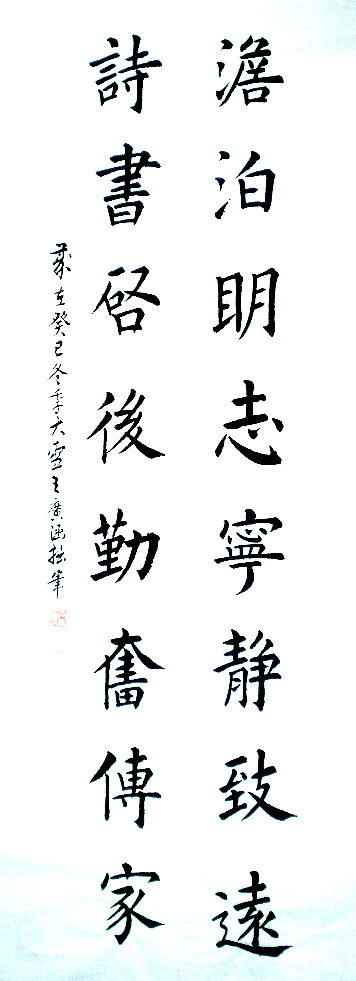 澹泊明志寧静致遠
詩書啓後勤奮傳家
歲在癸巳冬季大雪王廣通拙筆